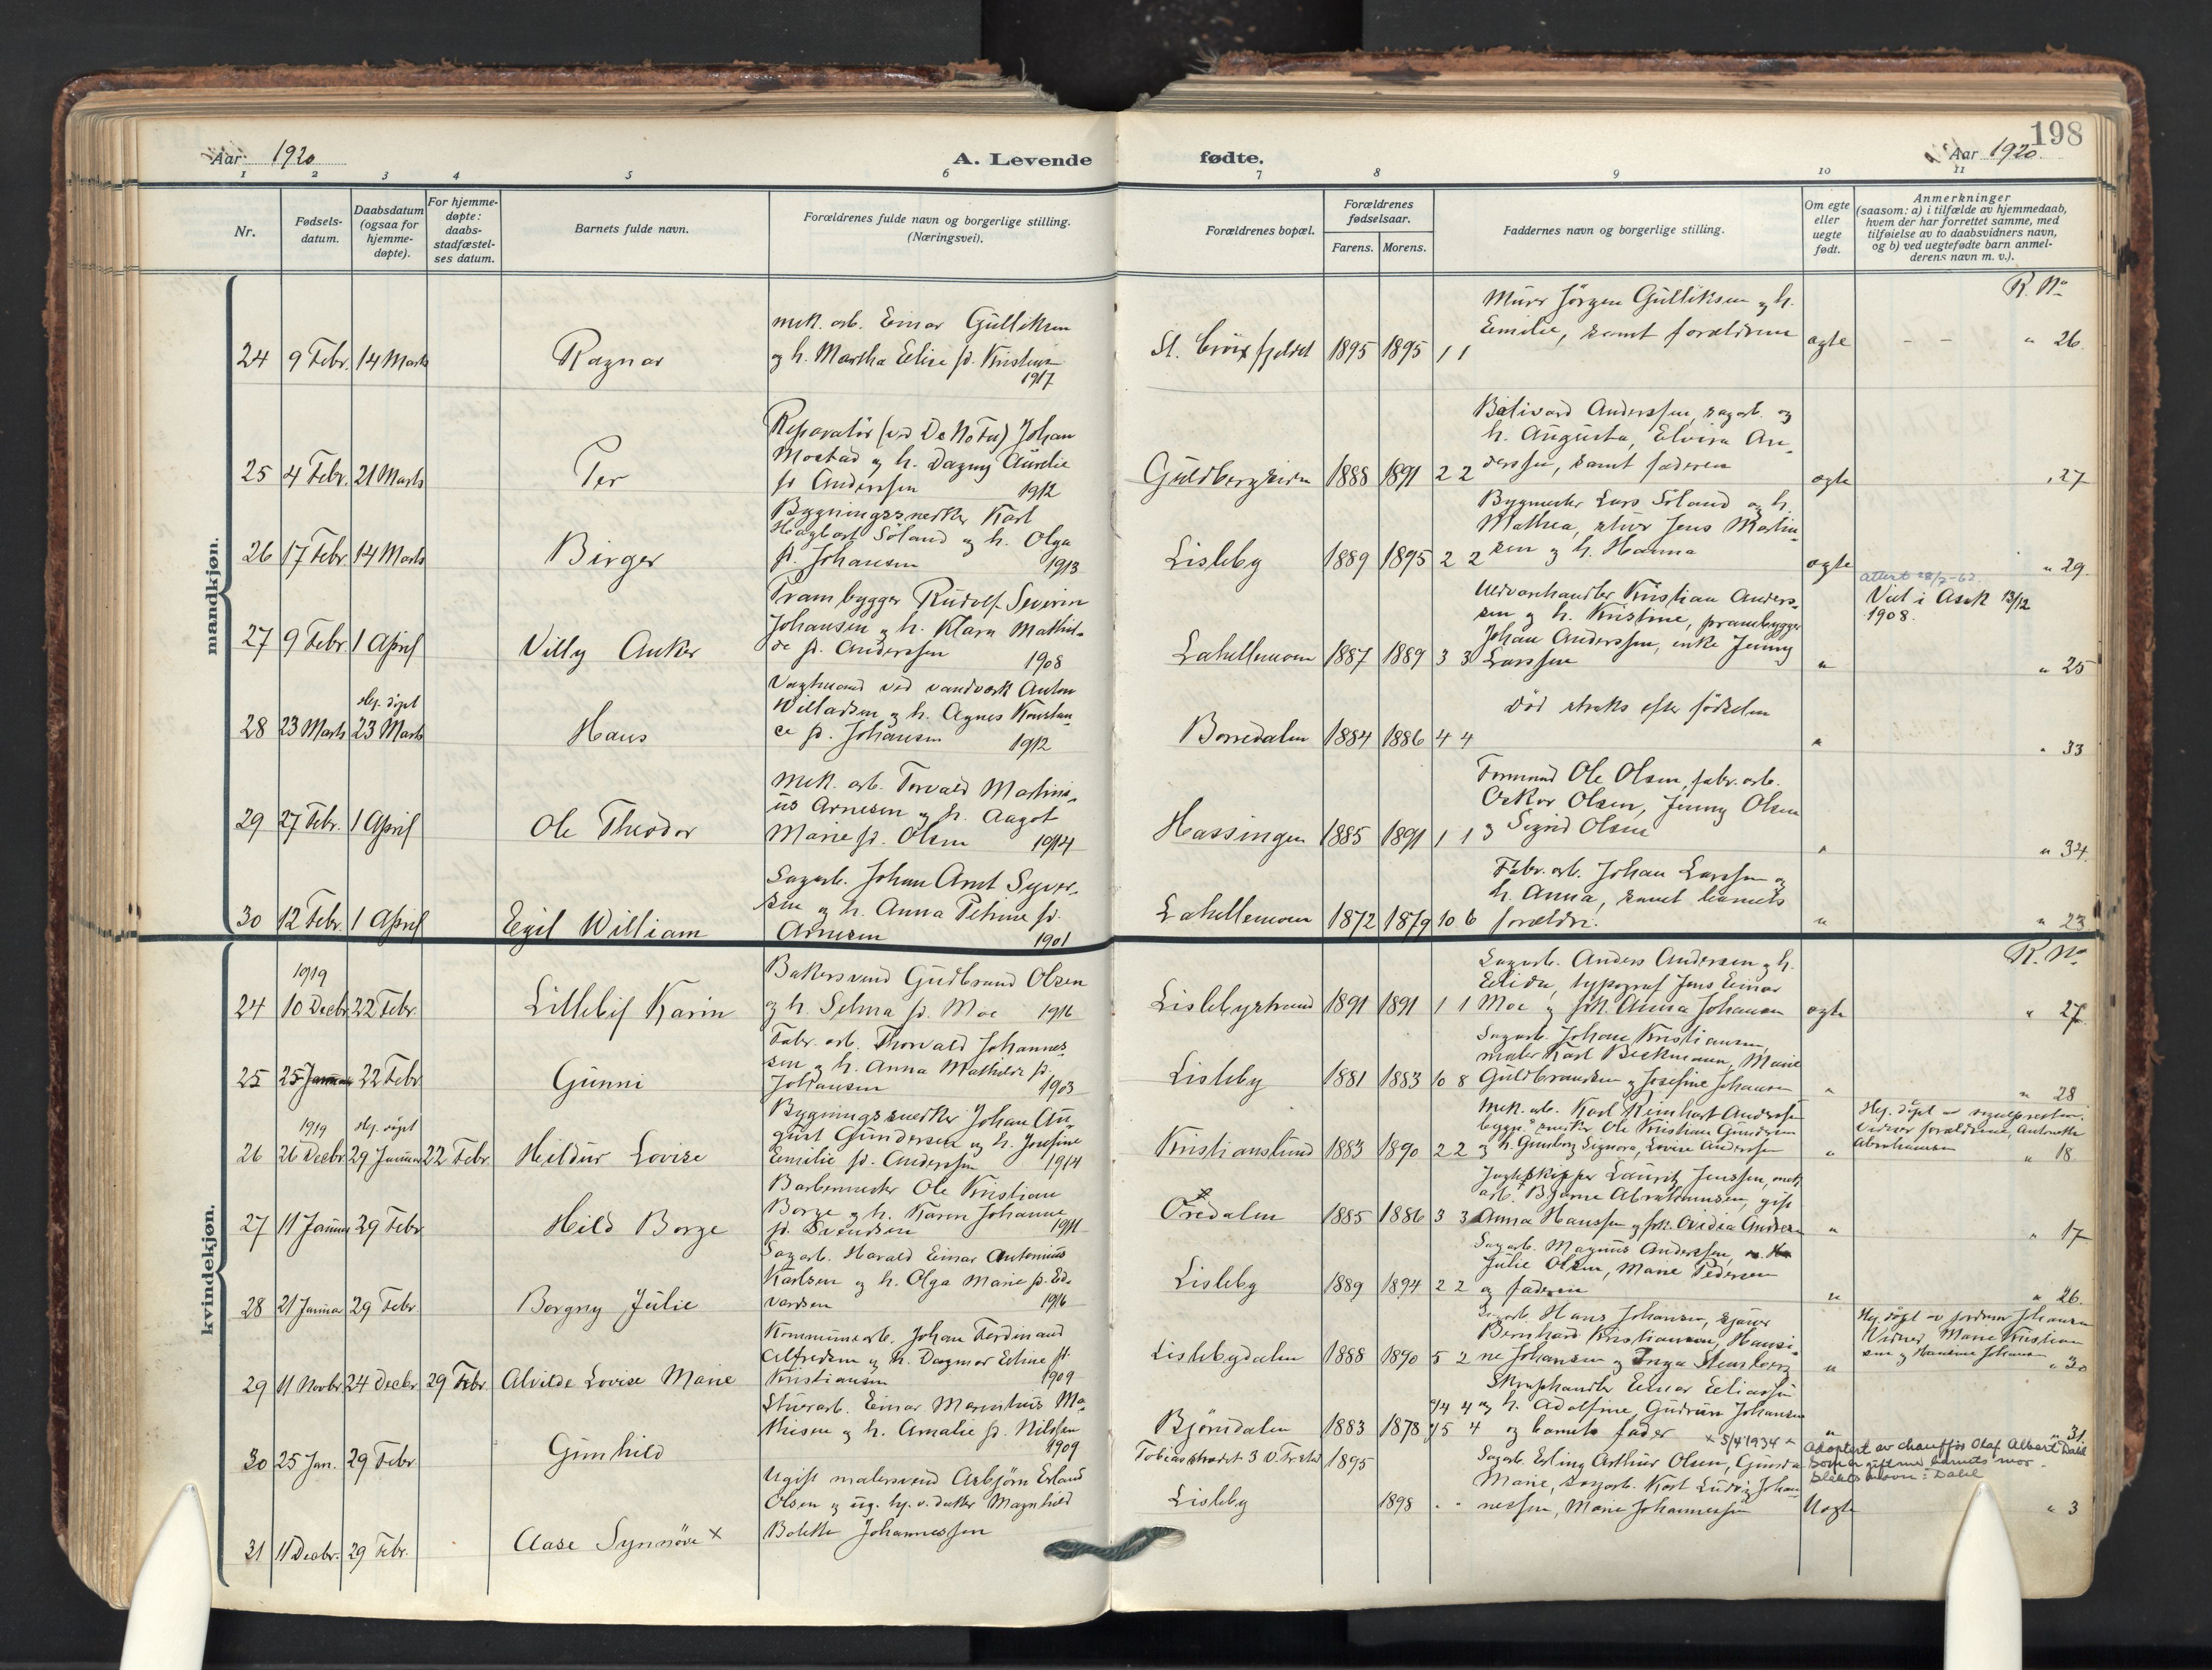 198
Aar 1920
A. Levende
fødte.
Aar 1920.
1 2 3 4 5 6 7 8 9 10 11
Nr.
Fødsels-
datum.
Daabsdatum
(ogsaa for
hjemme-
døpte).
For hjemme-
døpte:
daabs-
stadfæstel-
ses datum.
Barnets fulde navn.
Forældrenes fulde navn og borgerlige stilling.
(Næringsvei).
Forældrenes bopæl.
Forældrenes
fødselsaar.
Farens. Morens.
Faddernes navn og borgerlige stilling.
Om egte
eller
uegte
født.
Anmerkninger
(saasom: a) i tilfælde av hjemmedaab,
hvem der har forrettet samme, med
tilføielse av to daabsvidners navn,
og b) ved uegtefødte barn anmel-
derens navn m. v.).
mandkjøn.
R. No
24 9 Febr. 14 Marts Ragnar
mek. arb. Einar Gulliksen
og h. Martha Elise f.
1917
1895 1895 1 1
Murer Jørgen Gulliksen og h.
Emilie, samt forældrene
egte " 26.
25 4 Febr. 21 Marts Per
Reparatør Johan
Mostad og h. Dagny Aurelie
f. Anderssen 1912
1888 1891 2 2
Anderssen, sagarb. og
h. Augusta, Elvira An-
derssen, samt faderen
egte " 27
26 17 Febr. 14 Marts Birger
Bygningssnedker Karl
Hagbart Søland og h. Olga
f. Johansen 1913
Lisleby 1889 1895 2 2
Bygmester Lars Søland og h.
Mathea, Jens Martin-
sen og h. Hanna
egte " 29.
27 9 Febr. 1 April Villy Anker
Prambygger Rudolf Severin
Johansen og h. Klara Mathil-
de f. Anderssen 1908
Lahellemoen 1887 1889 3 3
Kristian Anders-
sen og h. Kristine, prambygger
Johan Anderssen, enke Jenny
Larssen
attest 28/2-62
Viet i Ask 13/12
1908.
" " 25
28 23 Marts Hj. døpt 23 Marts Hans
Vagtmand ved vandverk Anton
Willadsen og h. Agnes Konstan-
ce f. Johansen 1912
Borredalen 1884 1886 4 4
Død straks efter fødselen
" " 33
29 27 Febr. 1 April Ole Theodor
Mek. arb. Torvald Martini-
us Arnesen og h. Aagot
Marie f. Olsen 1914
Hassingen 1885 1891 1 1
Formand Ole Olsen, fabr. arb.
Oskar Olsen, Jenny Olsen
og Sigrid Olsen
" " 34.
30 12 Febr. 1 April Egil William
Sagarb. Johan Arnt Syver-
sen og h. Anna Petrine f.
Arnesen 1901
Lahellemoen 1872 1879 10 6
Fabr. arb. Johan Larssen og
h. Anna, samt barnets
forældre.
" " 23
kvindekjøn.
R. No
24 1919 10 Decbr. 22 Febr. Lillebif Karin
Bakersvend Gudbrand Olsen
og h. Selma f. Moe 1916
Lislebystrand 1891 1891 1 1
Sagarb. Anders Andersen og h.
Elida, typograf Jens Einar
Moe og frk. Anna Johansen
egte " 27
25 25 Januar 22 Febr Gunni
Fabr. arb. Thorvald Johannes-
sen og h. Anna Mathilde f.
Johansen 1903
Lisleby 1881 1883 10 8
Sagarb. Johan Kristiansen,
maler Karl Beckmann, Marie
Guldbrandsen og Josefine Johansen
" " 28
26 1919 26 Decbr Hj. døpt 29 Januar 22 Febr. Hildur Lovise
Bygningssnedker Johan Au-
gust Gundersen og h. Josefine
Emilie f. Anderssen 1914
Kristianslund 1883 1890 2 2
Mek. arb. Karl Reinhart Anderssen
bygn. snedker Ole Kristian Gundersen
og h. Gunborg Signora, Lovise Anderssen
Hj. døpt av
Vidner forældrene,
Abrahamsen
" " 18
27 11 Januar 29 Febr Hild Borge
Barbermester Ole Kristian
Borge og h. Karen Johanne
f. Svendsen 1911
Oredalen 1885 1886 3 3
Jagtskipper Lauritz Jenssen, mek.
arb. Bjarne Abrahamsen, gift
Anna Hanssen og frk. Ovidia Andersen
" " 17
28 21 Januar 29 Febr Borgny Julie
Sagarb. Harald Einar Antonius
Karlsen og h. Olga Marie f. Ed-
vardsen 1916
Lisleby 1889 1894 2 2
Sagarb. Magnus Anderssen,
Julie Olsen, Marie Pedersen
og faderen
" " 26.
29 11 Novbr 24 Decbr 29 Febr. Alvilde Lovise Marie
Kommunearb. Johan Ferdinand
Alfredsen og h. Dagmar Eline f.
Kristiansen 1909
Lislebydalen 1888 1890 5 2
Sagarb. Hans Johansen, sjauer
Bernhard Kristiansen, Hansi-
ne Johansen og Inga Stensberg
Hj. døpt av jordmor Johansen
Vidner, Marie Kristian-
sen og Hansine Johansen
" " 30
30 25 Jan. 29 Febr Gunhild
Stuerarb. Einar Marenius Ma-
thisen og h. Amalie f. Nilssen
1909
Bjørndalen 1883 1878
Skraphandler Einar Eliassen
og h. Adolfine, Gudrun Johansen
og barnets fader
" " 31.
31 11 Decbr. 29 Febr. Aase Synnøve x
Ugift malersvend Asbjørn Erland
Olsen og ug. hj. v. datter Magnhild
Bolette Johannessen
Tobiasstrædet 3 1895
Lisleby 1898
Sagarb. Erling Arthur Olsen, Gunda
Marie, sagarb. Karl Ludvig Johan-
nessen, Marie Johannessen
Uegte
x 5/4 1934
Adoptert av chauffør Olaf Albert Dahl
som er gift med barnets mor.
Slektsnavn: Dahl
" 3